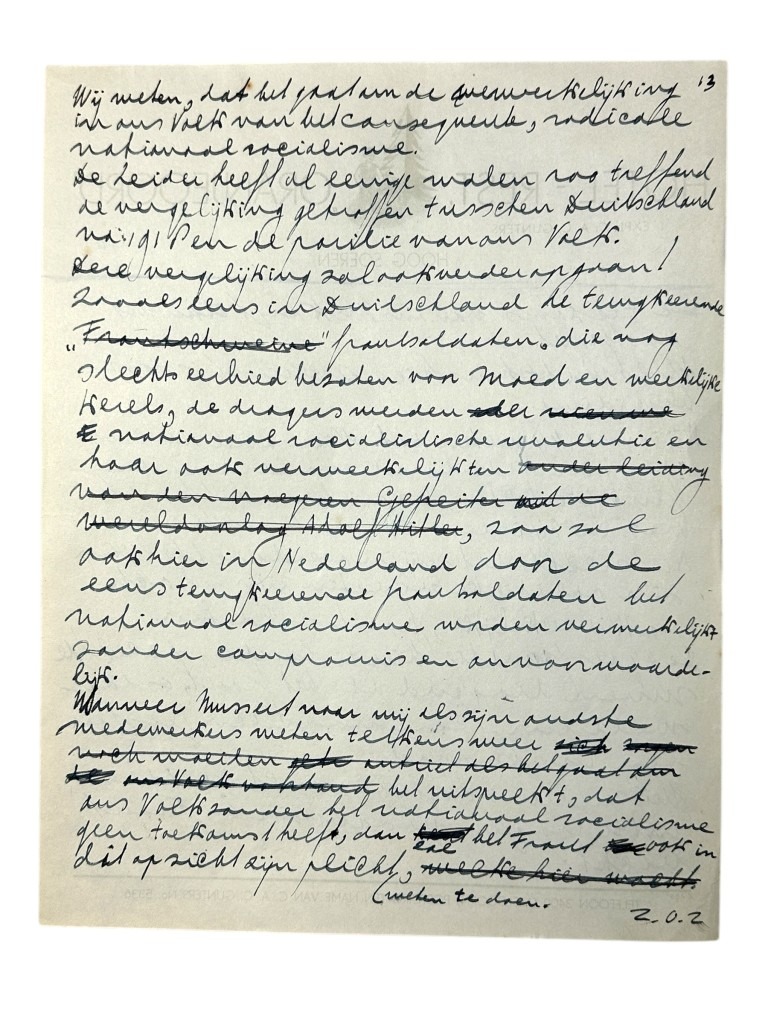 13
Wij weten, dat het gaat om de verwerkelijking
in ons Volk van het consequente, radicale
nationaal socialisme.
De Leider heeft al eenige malen zoo treffend
de vergelijking getroffen tusschen Duitschland
na 1918 en de positie van ons Volk.
Deze vergelijking zal ook verder opgaan!
Zooals eens in Duitschland de terugkeerende
„Frontschweine" frontsoldaten, die nog
slechts eerbied bezaten voor moed en werkelijke
kerels, de dragers werden der nieuwe
nationaal socialistische revolutie en
haar ook verwerkelijkten onder leiding
van den vroegeren Gefreiter uit de
wereldoorlog Adolf Hitler, zoo zal
ook hier in Nederland door de
eens terugkeerende frontsoldaten het
nationaal socialisme worden verwerkelijkt
zonder compromis en onvoorwaarde-
lijk.
Wanneer Mussert naar wij als zijn oudste
medewerkers weten telkens weer zich zorgen
noch moeiten ontziet als het gaat om
ons Volk het uitspreekt, dat
ons Volk zonder het nationaal socialisme
geen toekomst heeft, dan zal het Front ook in
dit opzicht zijn plicht, welke hier wacht
weten te doen.
Z.O.Z
HOOG SOEREN